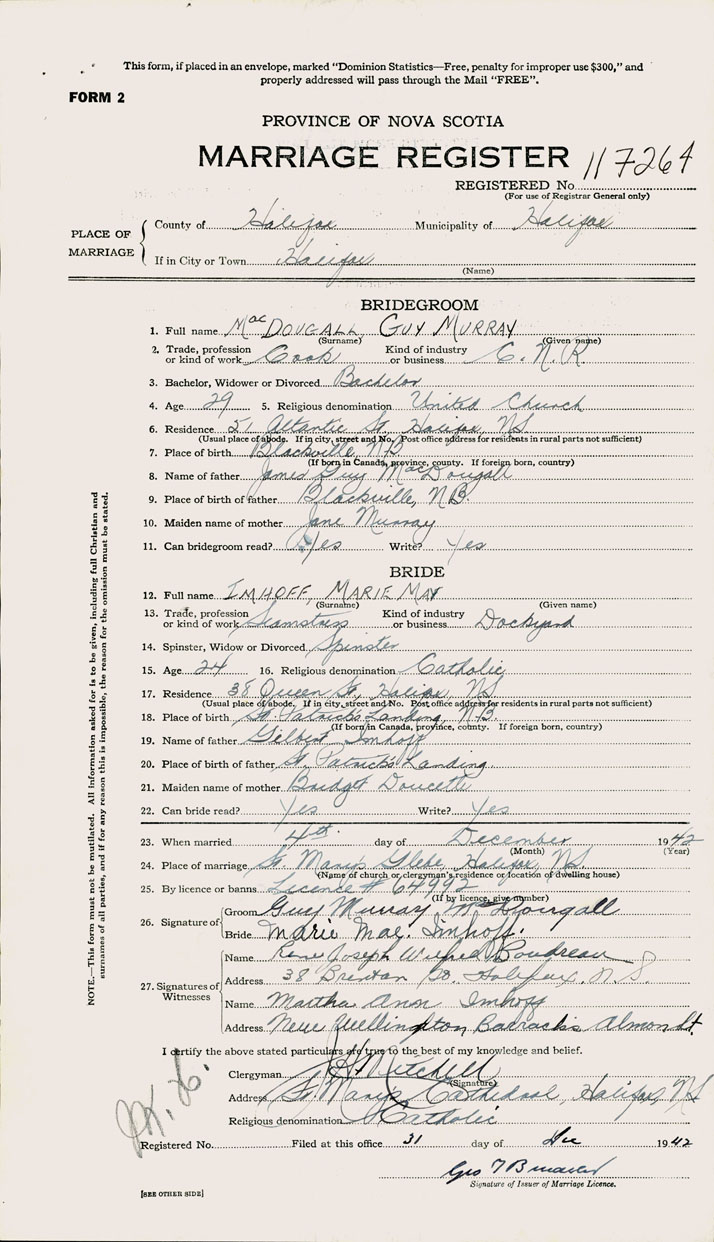 This form, if placed in an envelope, marked "Dominion Statistics—Free, penalty for improper use $300," and
properly addressed will pass through the Mail "FREE".
FORM 2
PROVINCE OF NOVA SCOTIA
MARRIAGE REGISTER 117264
REGISTERED No.
(For use of Registrar General only)
PLACE OF MARRIAGE
County of Halifax Municipality of Halifax
If in City or Town Halifax
(Name)
BRIDEGROOM
1. Full name MacDOUGALL, GUY MURRAY
(Surname) (Given name)
2. Trade, profession or kind of work Cook Kind of industry or business C.N.R
3. Bachelor, Widower or Divorced Bachelor
4. Age 29 5. Religious denomination United Church
6. Residence 51 Atlantic St, Halifax, NS
(Usual place of abode. If in city, street and No. Post office address for residents in rural parts not sufficient)
7. Place of birth Blackville, NB
(If born in Canada, province, county. If foreign born, country)
8. Name of father James Guy MacDougall
9. Place of birth of father Blackville, NB.
10. Maiden name of mother Jane Murray
11. Can bridegroom read? Yes Write? Yes
BRIDE
12. Full name IMHOFF, MARIE MAY
(Surname) (Given name)
13. Trade, profession or kind of work Seamstress Kind of industry or business Dockyard
14. Spinster, Widow or Divorced Spinster
15. Age 24 16. Religious denomination Catholic
17. Residence 38 Queen St, Halifax, NS
(Usual place of abode. If in city, street and No. Post office address for residents in rural parts not sufficient)
18. Place of birth St. Patricks Landing, N.B.
(If born in Canada, province, county. If foreign born, country)
19. Name of father Gilbert Imhoff
20. Place of birth of father St. Patricks Landing
21. Maiden name of mother Bridget Doucette
22. Can bride read? Yes Write? Yes
23. When married 4th day of December 1942
(Month) (Year)
24. Place of marriage St. Marys Glebe, Halifax, NS.
(Name of church or clergyman's residence or location of dwelling house)
25. By licence or banns License # 64992
(If by licence, give number)
26. Signature of
Groom Guy Murray McDougall
Bride Marie Mae. Imhoff.
27. Signatures of Witnesses
Name Rene Joseph Wilfred Boudreau
Address 38 Brenton St. Halifax. N.S.
Name Martha Ann Imhoff
Address New Wellington Barracks Almon St.
I certify the above stated particulars are true to the best of my knowledge and belief.
Clergyman Mitchell
(Signature)
Address St. Marys Cathedral, Halifax, NS
Religious denomination Catholic
Registered No. Filed at this office 31 day of Dec 1942
Geo
Signature of Issuer of Marriage Licence.
[SEE OTHER SIDE]
NOTE.—This form must not be mutilated. All information asked for is to be given, including full Christian and
surnames of all parties, and if for any reason this is impossible, the reason for the omission must be stated.